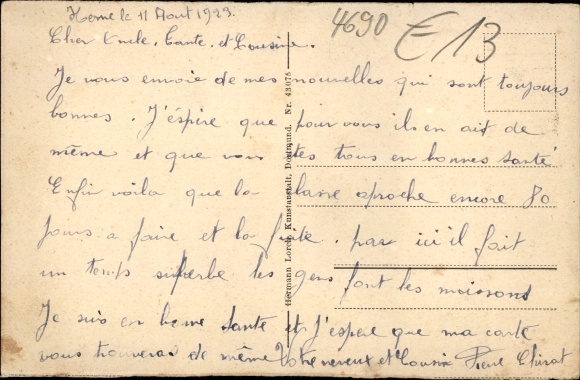 Herne le 11 Aout 1923.
4690
E13
Cher Oncle, Tante, et Cousine.
Je vous envoie de mes nouvelles qui sont toujours
bonnes. J'éspère que pour vous ils en ait de
même et que vous êtes tous en bonnes santé
Enfin voila que la classe aproche encore 80
jours a faire et la fuite. par ici il fait
un temps superbe les gens font les moissons
Je suis en bonne sante et j'espère que ma carte
vous trouveras de même Votre neveux et Cousin Pierre
Hermann Lorch, Kunstanstalt, Dortmund. Nr. 43078